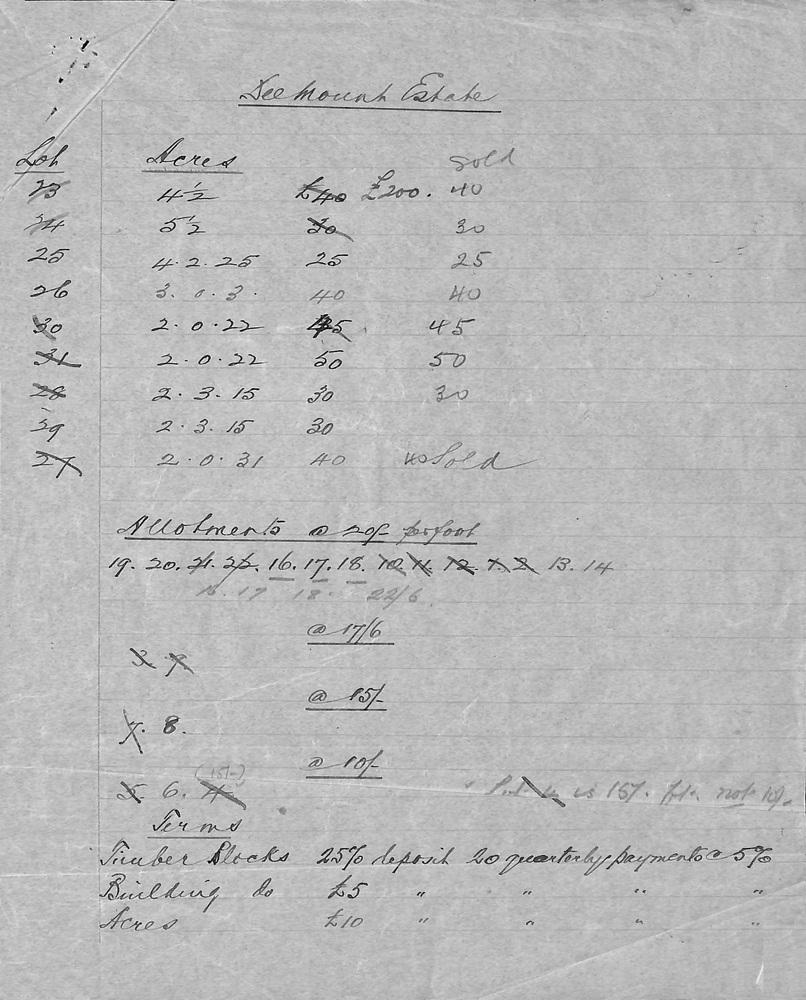 Deemount Estate
Lot Acres sold
23 4½ £40 £200. 40
24 5½ 30 30
25 4.2.25 25 25
26 3.0.3. 40 40
30 2.0.22 45 45
31 2.0.22 50 50
28 2.3.15 30 30
39 2.3.15 30
27 2.0.31 40 40 Sold
Allotments @ 20/- per foot
19. 20. 21. 22. 16. 17. 18. 10. 11. 12. 1. 2. 13. 14
16. 17 18. 22/6
@ 17/6
3. 9
@ 15/-
7. 8.
@ 10/-
(15/-)
5. 6. 4
Lot 4 is 15/- ft. not 10/-
Terms
Timber Blocks 25% deposit 20 quarterly payments @ 5%
Building do £5 " " " "
Acres £10 " " " "